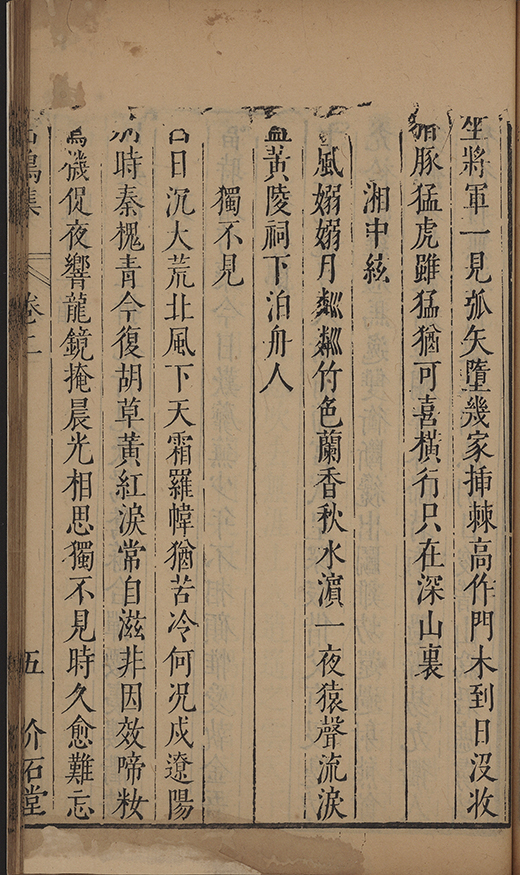 將軍一見弧矢墮幾家挿棘高作門未到日沒收
豬豚猛虎雖猛猶可喜橫行只在深山裏
湘中絃
風嫋嫋月粼粼竹色蘭香秋水濵一夜猿聲流淚
黃陵祠下泊舟人
獨不見
白日沉大荒北風下天霜羅幃猶苦冷何况戍遼陽
時秦槐青今復胡草黃紅淚常自滋非因效啼粧
機促夜響龍鏡掩晨光相思獨不見時久愈難忘
鳴集 卷二 五 介石堂